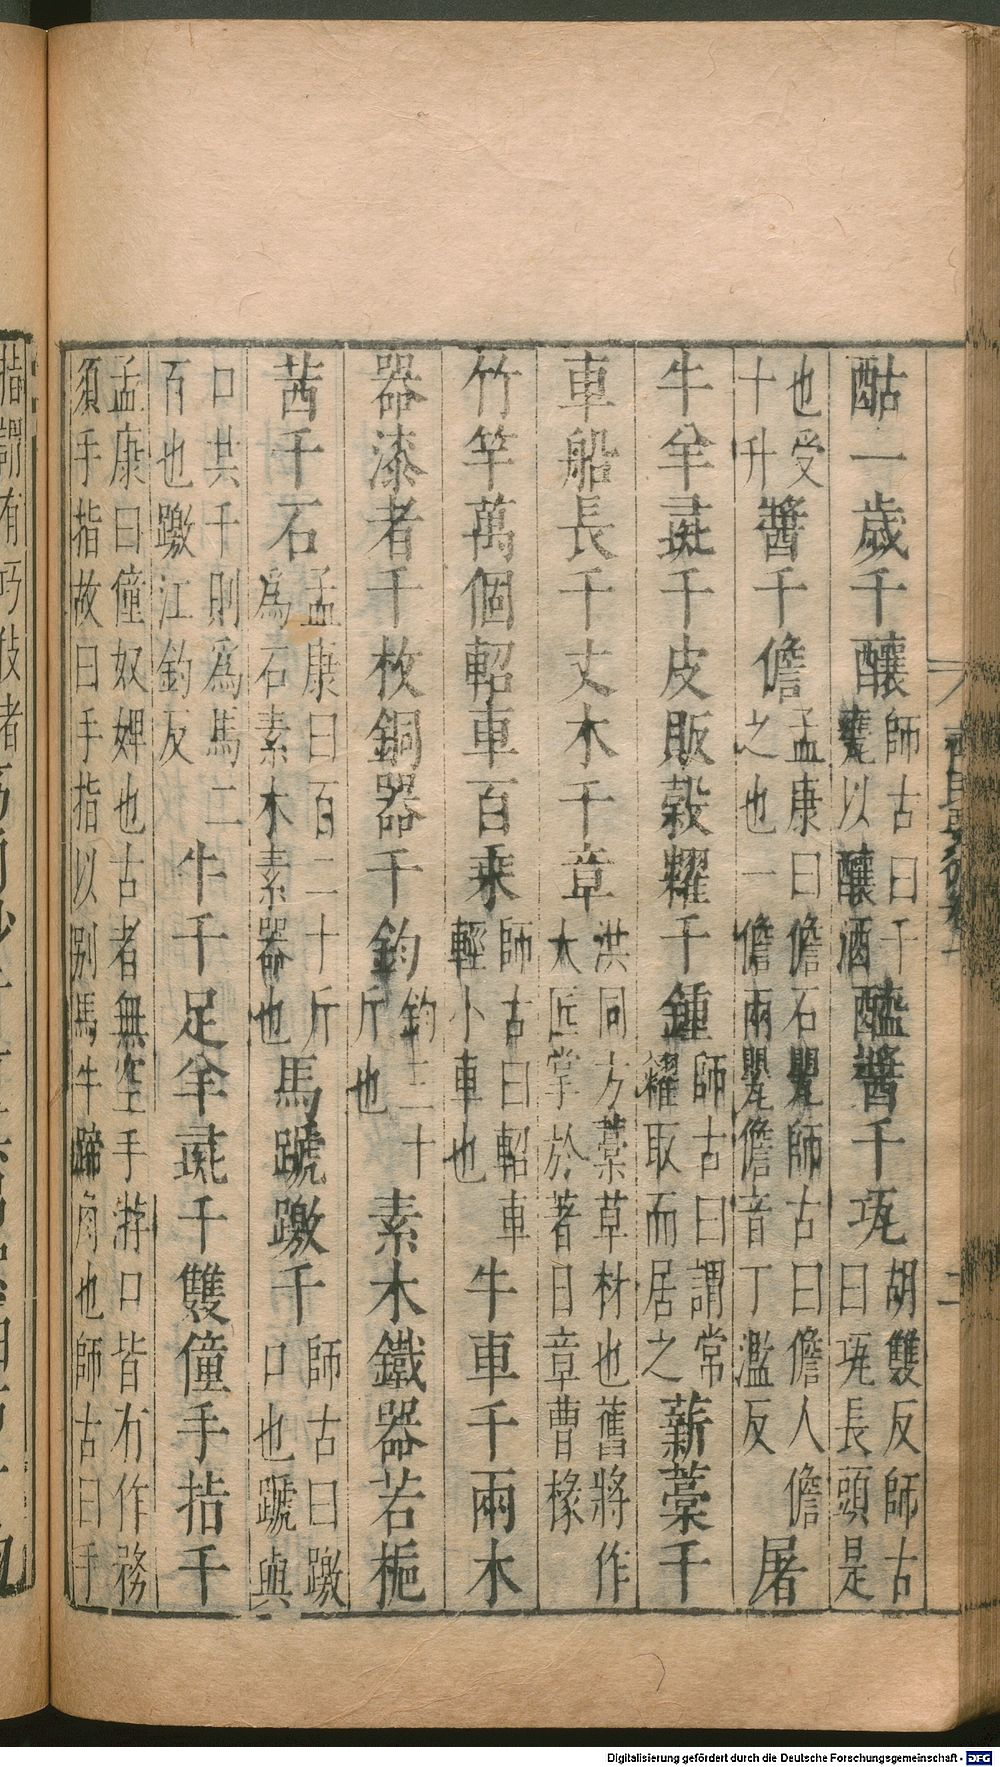 齊民要術卷七 二
酤一歲千釀師古曰千甕以釀酒醯醬千瓨胡雙反師古曰瓨長頭是
也受十升醬千儋孟康曰儋石甖師古曰儋人儋之也一儋兩甖儋音丁濫反屠
牛羊彘千皮販穀糶千鍾師古曰謂常糶取而居之薪藁千
車船長千丈木千章洪同方藁草材也舊將作大匠掌於著曰章曹椽
竹竿萬個軺車百乘師古曰軺車輕小車也牛車千兩木
器漆者千枚銅器千鈞鈞三十斤也素木鐵器若梔
茜千石孟康曰百二十斤為石素木素器也馬蹏躈千師古曰躈口也蹏與
口共千則為馬二百也躈江釣反牛千足羊彘千雙僮手指千
孟康曰僮奴婢也古者無空手游口皆有作務須手指故曰手指以別馬牛蹄角也師古曰手
指謂有巧伎者
Digitalisierung gefördert durch die Deutsche Forschungsgemeinschaft - DFG